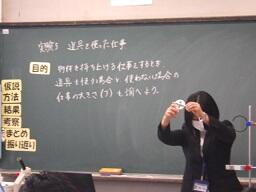 実験5 道具を使った仕事
目的 物体を持ち上げる仕事をするとき、
道具を使う場合と使わない場合の
仕事の大きさ(J)を調べよう。
仮説
方法
結果
考察
まとめ
振り返り